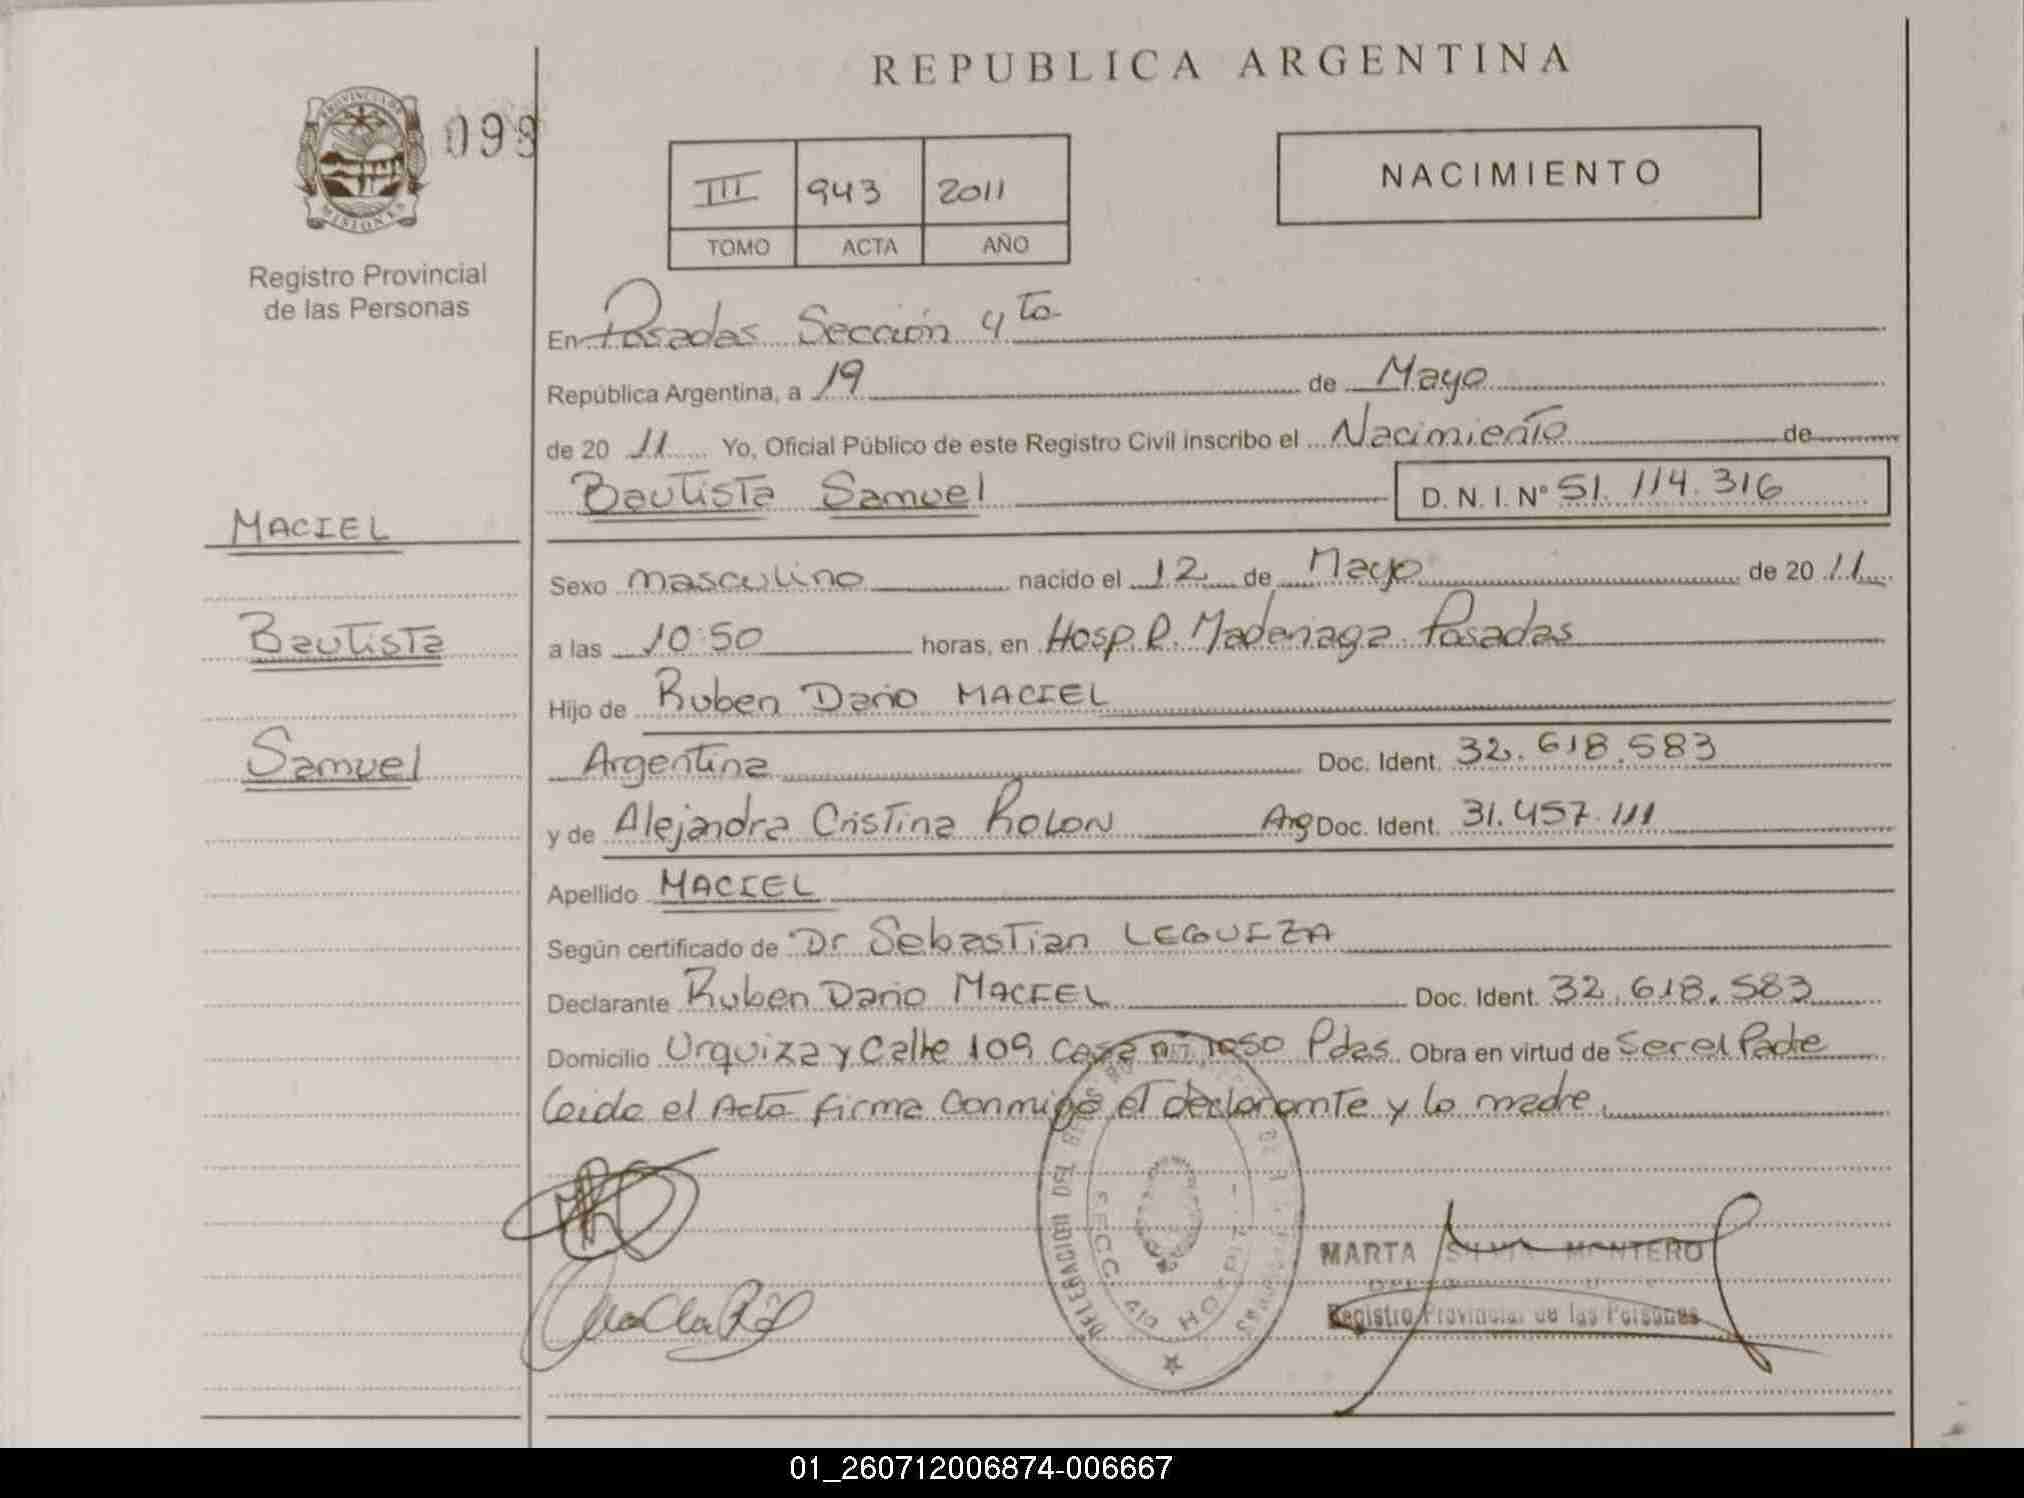 REPUBLICA ARGENTINA
PROVINCIA DE
MISIONES
099
Registro Provincial
de las Personas
III 943 2011
TOMO ACTA AÑO
NACIMIENTO
En Posadas Sección 4ta
República Argentina, a 19 de Mayo
de 2011 Yo, Oficial Público de este Registro Civil inscribo el Nacimiento de
Bautista Samuel D. N. I. Nº 51.114.316
MACIEL
Bautista
Samuel
Sexo masculino nacido el 12 de Mayo de 2011
a las 10:50 horas, en Hosp. R. Madariaga Posadas
Hijo de Ruben Dario MACIEL
Argentina Doc. Ident. 32.618.583
y de Alejandra Cristina ROLON Arg Doc. Ident. 31.457.111
Apellido MACIEL
Según certificado de Dr Sebastian LEGUIZA
Declarante Ruben Dario MACIEL Doc. Ident. 32.618.583
Domicilio Urquiza y Calle 109 casa nº Pdas. Obra en virtud de Ser el Padre
Leida el Acta firma conmigo el declarante y la madre.
SECC. 4ta HOSPITAL
MARTA SILVIA MONTERO
Registro Provincial de las Personas
01_260712006874-006667